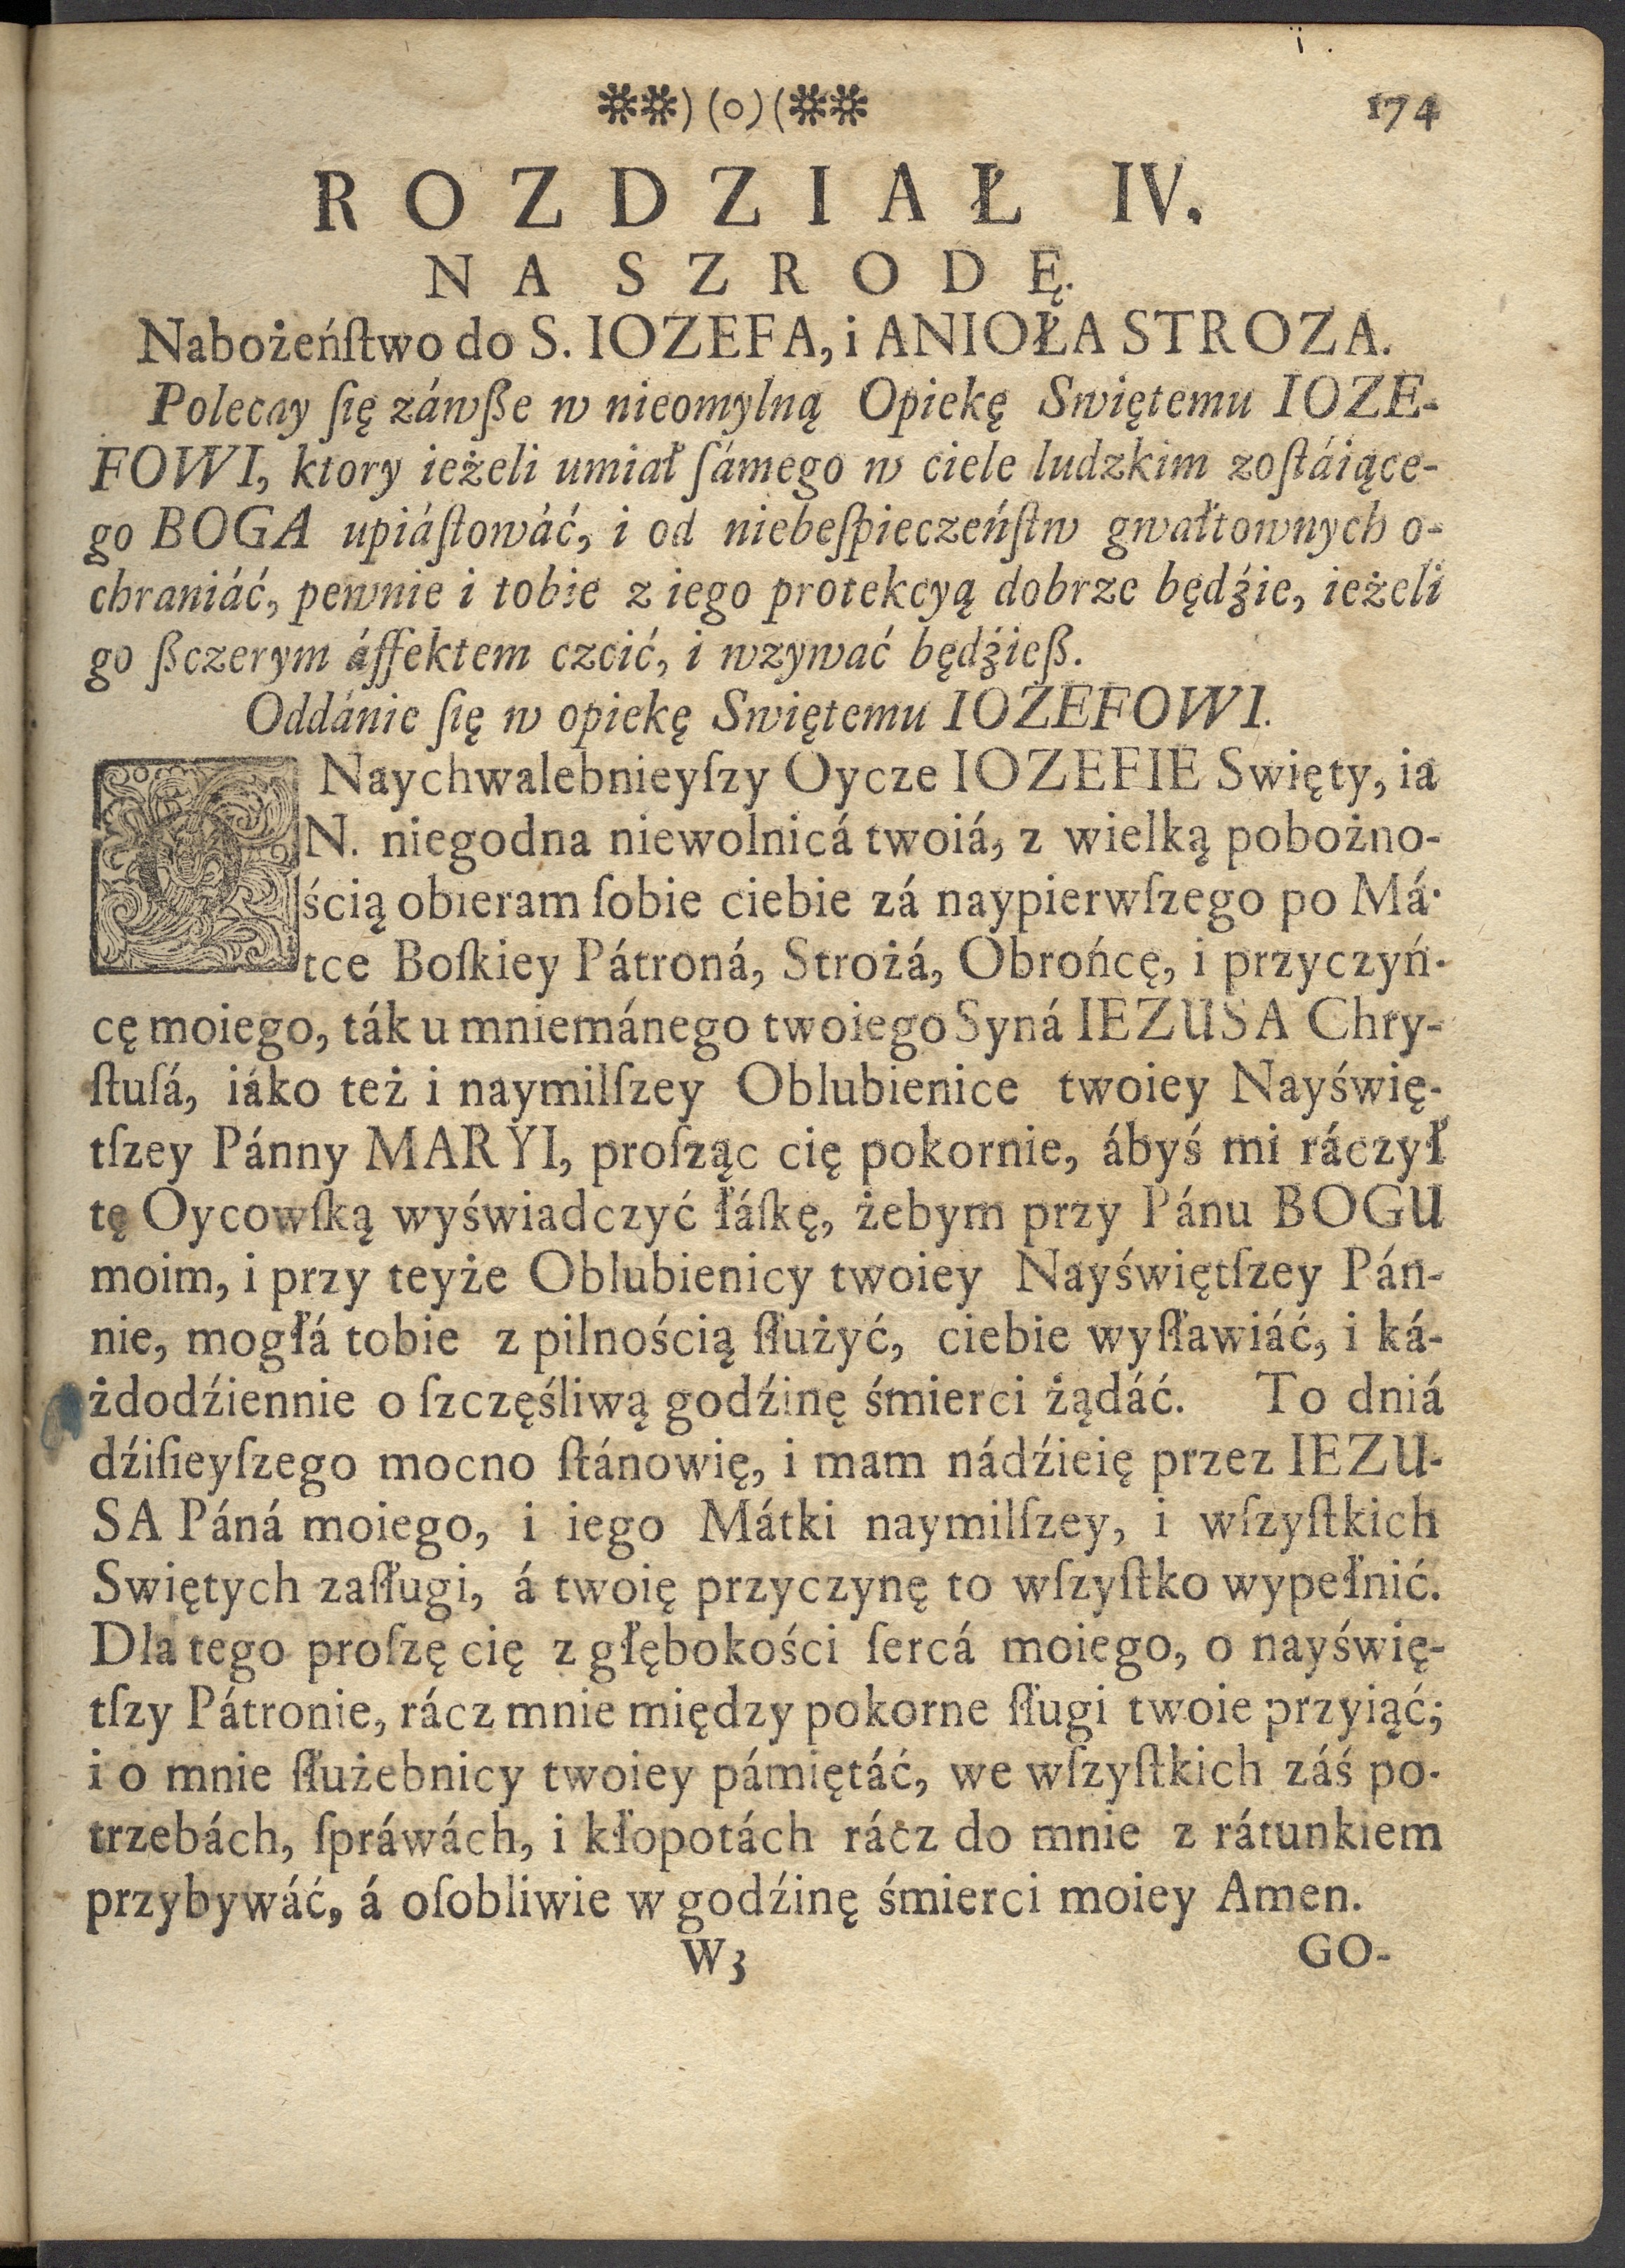 ❋❋)(o)(❋❋ 174
ROZDZIAŁ IV.
NA SZRODĘ.
Nabożeńſtwo do S. IOZEFA, i ANIOŁA STROZA.
Polecay ſię záwße w nieomylną Opiekę Swiętemu IOZE-
FOWI, ktory ieżeli umiał ſámego w ciele ludzkim zoſtáiące-
go BOGA upiáſtowáć, i od niebeſpieczeńſtw gwałtownych o-
chraniáć, pewnie i tobie z iego protekcyą dobrze będźie, ieżeli
go ßczerym áffektem czcić, i wzywać będźieß.
Oddánie ſię w opiekę Swiętemu IOZEFOWI.
O Naychwalebnieyſzy Oycze IOZEFIE Swięty, ia
N. niegodna niewolnicá twoiá, z wielką pobożno-
ścią obieram ſobie ciebie zá naypierwſzego po Má-
tce Boſkiey Pátroná, Strożá, Obrońcę, i przyczyń-
cę moiego, ták u mniemánego twoiego Syná IEZUSA Chry-
ſtuſá, iáko też i naymilſzey Oblubienice twoiey Nayświę-
tſzey Pánny MARYI, proſząc cię pokornie, ábyś mi ráczył
tę Oycowſką wyświadczyć łáſkę, żebym przy Pánu BOGU
moim, i przy teyże Oblubienicy twoiey Nayświętſzey Pán-
nie, mogłá tobie z pilnością ſłużyć, ciebie wyſławiáć, i ká-
żdodźiennie o ſzczęśliwą godźinę śmierci żądáć. To dniá
dźiſieyſzego mocno ſtánowię, i mam nádźieię przez IEZU-
SA Páná moiego, i iego Mátki naymilſzey, i wſzyſtkich
Swiętych zaſługi, á twoię przyczynę to wſzyſtko wypełnić.
Dla tego proſzę cię z głębokości ſercá moiego, o nayświę-
tſzy Pátronie, rácz mnie między pokorne ſługi twoie przyiąć;
i o mnie ſłużebnicy twoiey pámiętáć, we wſzyſtkich záś po-
trzebách, ſpráwách, i kłopotách rácz do mnie z rátunkiem
przybywáć, á oſobliwie w godźinę śmierci moiey Amen.
W3 GO-